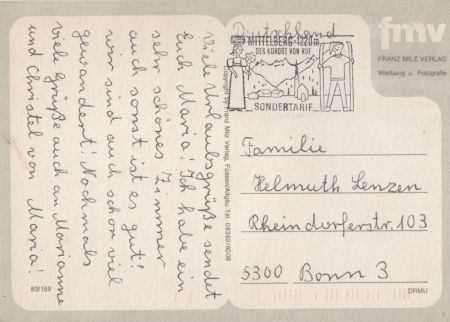 Viele Urlaubsgrüße sendet
Euch Maria! Ich habe ein
sehr schönes Zimmer
auch sonst ist es gut!
wir sind auch schon viel
gewandert! Nochmals
viele Grüße auch an Marianne
und Christel von Maria!
83/159
Franz Milz Verlag, Füssen/Allgäu Tel. 08362/6008
Deutschland
MITTELBERG · 1220m
DER KURORT VON RUF
SONDERTARIF
fmv
FRANZ MILZ VERLAG
Werbung u. Fotografie
Familie
Helmuth Lenzen
Rheindorferstr. 103
5300 Bonn 3
DRMU